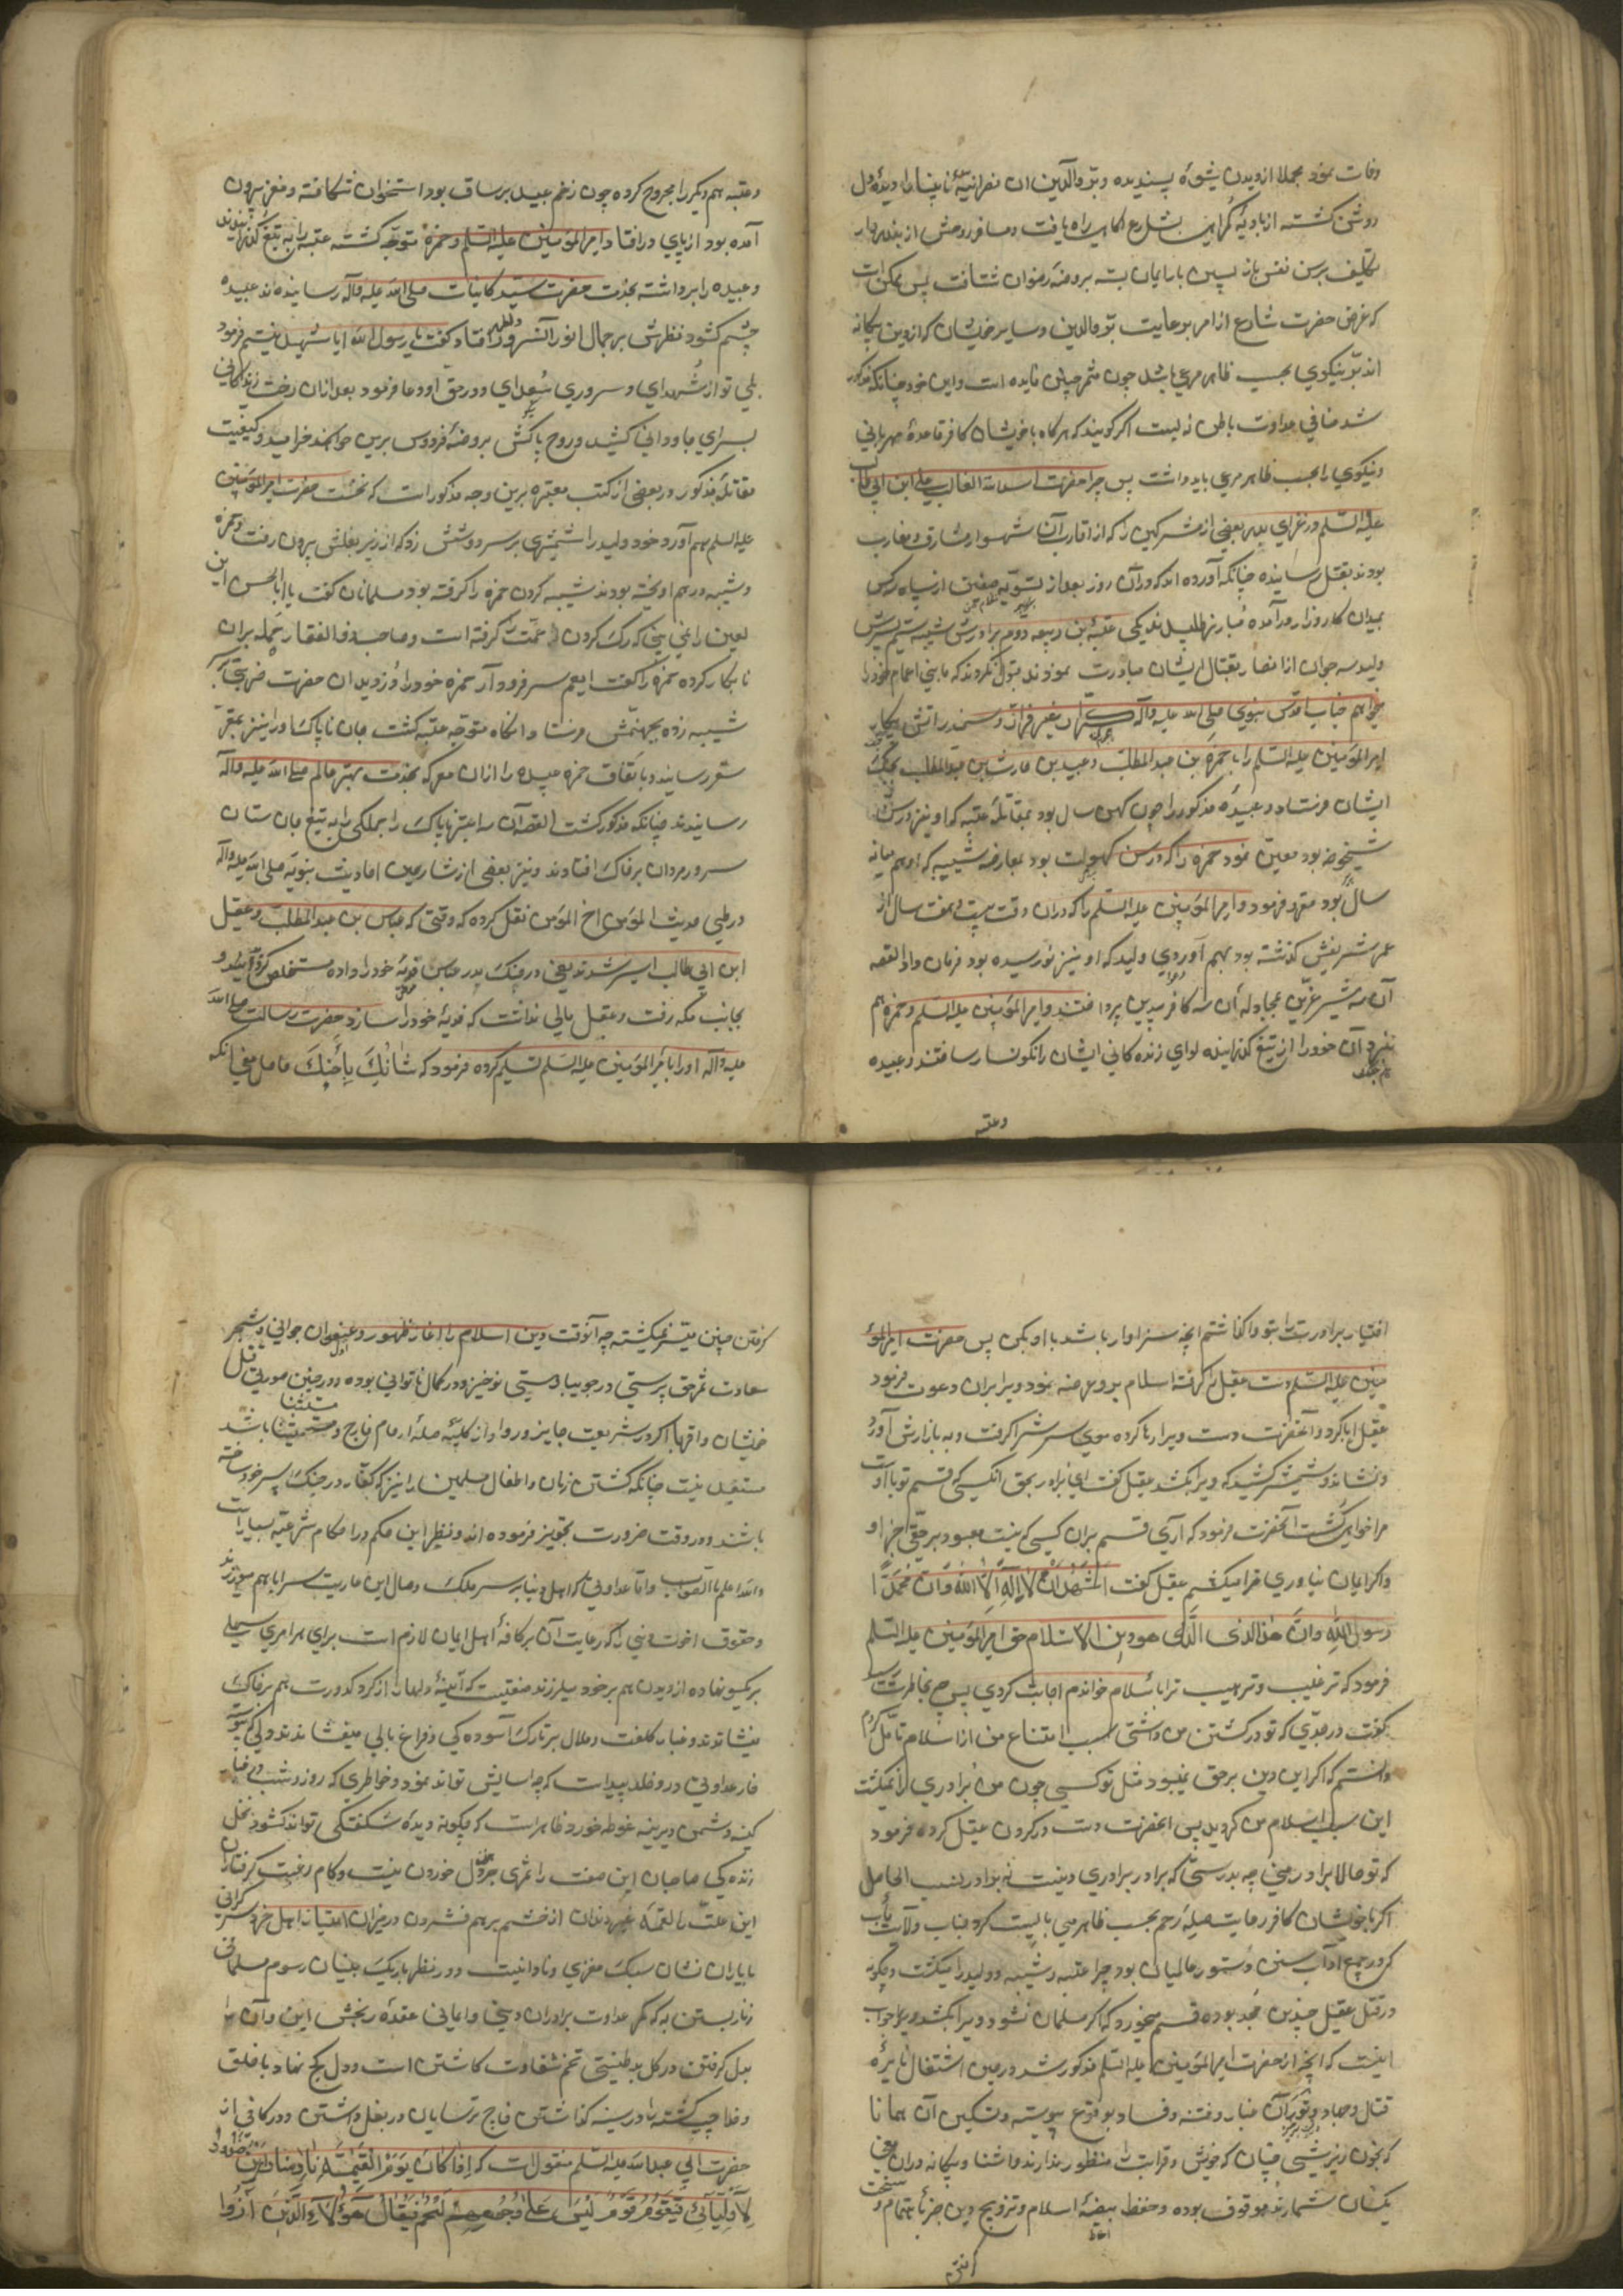 وفات نمود مجملا از دیدن شیوهٔ پسندیده و برّ والدین آن نصرانیه نابینا را دیدهٔ دل
روشن کشته از بادیهٔ کمراهی بشارع راه یافت و مسافر روحش از
تکلیف برین نفس باز پسین بار ایمان بسته بروضهٔ رضوان شتافت پس ممکن است
که غرض حضرت شارع از امر برعایت برّ والدین و سایر خویشان که از دین بیکانه
اند برّ و نیکوی بحسب ظاهر مرعی باشد چون مثمر چنین فایده است و این خود چنانکه مذکور
شد منافی عداوت باطن نیست اکر کویند که هرکاه با خویشان کافر قاعدهٔ مهربانی
و نیکوی را بحسب ظاهر مرعی باید داشت پس چرا حضرت اسد الله الغالب علی ابن ابی طالب
علیه السلم در غزای بدر بعضی از مشرکین را که از اقارب آن شهسوار مشارق و مغارب
بودند بقتل رسانیده چنانکه آورده اند که در آن روز بعد از تسویهٔ صفین از سپاه سه کس
بمیدان کارزار درآمده مبارز طلبیدند یکی عتبه بن ربیعه دوم برادرش شیبه سیم پسرش
ولید سه جوان از انصار بقتال ایشان مبادرت نمودند قبول نکردند که ما بنی اعمام خود را
میخواهیم جناب اقدس نبوی صلی الله علیه وآله
امیر المومنین علیه السلم را با حمزه بن عبد المطلب و عبیده بن حارث بن عبد المطلب بجنک
ایشان فرستاد و عبیدهٔ مذکور را چون کهن سال بود بمقاتلهٔ عتبه که او نیز در سن
شیخوخه بود معین نمود حمزه را که در سن کهولت بود بمعارضهٔ شیبه که او هم میانه
سال بود مقرر فرمود و امیر المومنین علیه السلم را که در آن وقت بیست و هفت سال از
عمر شریفش کذشته بود بهم آوردی ولید که او نیز نورسیده بود فرمان داد القصه
آن سه شیر عرین بمجادلهٔ آن سه کافر بیدین پرداختند و امیر المومنین علیه السلم و حمزه هم
نبرد آن خود را از تیغ کذرانیده لوای زنده کانی ایشان را نکونسار ساختند و عبیده
وعتبه
وعتبه هم دیکر را مجروح کرده چون زخم عبیده بر ساق بود استخوان شکافته و مغز بیرون
آمده بود از پای در افتاد و امیر المومنین علیه السلم و حمزه متوجه کشته عتبه را به تیغ کذرانیدند
و عبیده را برداشته بخدمت حضرت سید کاینات صلی الله علیه وآله رسانیدند عبیده
چشم کشود نظرش بر جمال انور آنسرور افتاد کفت یا رسول الله ایا شهید نیستم فرمود
بلی تو از شهدای و سروری سعدای و در حق او دعا فرمود بعد از آن رخت زندکانی
بسرای جاودانی کشید و روح پاکش بروضهٔ فردوس برین خرامید و کیفیت
مقاتلهٔ مذکور در بعضی از کتب معتبره برین وجه مذکور است که نخست حضرت امیر المومنین
علیه السلم هم آورد خود ولید را شمشیری بر سر دوشش زد که از زیر بغلش بیرون رفت و حمزه
و شیبه درهم اویخته بودند شیبه کردن حمزه را کرفته بود مسلمانان کفت یا ابا الحسن این
لعین را نمی بینی که رک کردن عمّت کرفته است و صاحب ذو الفقار حمله بران
نابکار کرده حمزه را کفت ای عم سر فرود آر حمزه خود را دزدید آن حضرت ضربتی بر
شیبه زده بجهنمش فرستاد و آنکاه متوجه عتبه کشت جان ناپاک او را نیز بمقرّ
سقر رسانید و باتفاق حمزه عبیده را از آن معرکه بخدمت بهتر عالم صلی الله علیه وآله
رسانیدند چنانکه مذکور کشت القصه آن سه را بتیغ جان ستان
سرور مردان بر خاک افتادند و نیز بعضی از شارحین احادیث نبویه صلی الله علیه وآله
در طی حدیث المؤمن اخ المؤمن نقل کرده که وقتی که عباس بن عبد المطلب و عقیل
ابن ابی طالب اسیر شدند یعنی در جنک بدر عباس فدیهٔ خود را داده مستخلص کردید و
بجانب مکه رفت و عقیل مالی نداشت که فدیهٔ خود را سازد حضرت رسالت صلی الله
علیه وآله او را با میر المومنین علیه السلم تسلیم کرده فرمود که شَانُكَ بِأَخِيكَ حاصل معنی آنکه
اختیار برادرت را بتو واکذاشتم آنچه سزاوار باشد با او بکن پس حضرت امیر المو
منین علیه السلم دست عقیل را کرفته اسلام برو عرضه نمود و ویرا بران دعوت فرمود
عقیل ابا کرد و آنحضرت دست ویرا رها کرده موی سرش را کرفت و به بازارش آورد
و نشاند و شمشیر کشید که ویرا بکشد عقیل کفت ای برادر بحق آنکسی که قسم تو با اوست
مرا خواهی کشت آنحضرت فرمود که آری قسم بران کسی که نیست معبود بر حقی جز او
و اکر ایمان نیاوری ترا میکشم عقیل کفت اشهد ان لا اله الا الله وان محمدا
رسول الله وان هذا الذی هو دین الاسلام حق امیر المومنین علیه السلم
فرمود که ترغیب و ترهیب ترا باسلام خواندم اجابت کردی پس چه بخاطرت رسید
کفت در مدتی که تو در کشتن من داشتی بسبب امتناع من از اسلام تامل کردم
دانستم که اکر این دین برحق نمیبود مثل تو کسی چون من برادری را نمیکشت
این سبب اسلام من کردید پس آنحضرت دست در کردن عقیل کرده فرمود
که تو حالا برادر منی چه بدرستی که برادر برادری دینیست نه برادر نسب الحاصل
اکر با خویشان کافر رعایت صلهٔ رحم بحسب ظاهر می بایست کرد جناب ولایت مآب
که در جمیع اداب سنن دستور عالمیان بود چرا عتبه و شیبه و ولید را میکشت و چکونه
در قتل عقیل چندین مجد بوده قسم میخورد که اکر مسلمان نشود ویرا بکشد جواب
اینست که آنچه از حضرت امیر المومنین علیه السلم مذکور شد در حین اشتعال نایرهٔ
قتال و جهاد و ثوران غبار فتنه و فساد بوقوع پیوسته و تسکین آن همانا
که بخون ریزی چنان که خویش و قرابت منظور ندارند و اشنا و بیکانه دران معنی
یکسان شمارند موقوف بوده و حفظ بیضهٔ اسلام و ترویج دین جز باهتمام و سخت
کرفتن چنین میسر نمیکشته چه آنوقت دین اسلام را آغاز ظهور و عنفوان جوانی و شجر
سعادت ثمر حق پرستی در جویبار هستی نوخیز و در کمال ناتوانی بوده و در چنین صورتی قتل
خویشان و اقربا اکر در شریعت جایز و روا و از کلیهٔ صلهٔ ارحام خارج و مستثنی باشد
مستبعد نیست چنانکه کشتن زنان و اطفال مسلمین را نیز که کفار در جنک سپر خود ساخته
باشند در وقت ضرورت تجویز فرموده اند و نظیر این حکم در احکام شرعیه بسیار است
والله اعلم بالصواب و اما عداوتی که اهل دنیا بر سر ملک و مال این عاریت سرا با هم میورزند
و حقوق اخوت دینی را که رعایت آن بر کافهٔ اهل ایمان لازم است برای هر امری سهلی
بر یکسو نهاده از دیدن هم بر خود میلرزند صفتیست که آیینهٔ دلها را از کرد کدورت هم بر خاک
مینشانند و غبار کلفت و ملال بر تارک آسوده کی و فراغ بالی میفشانند
خار عداوتی در و خلد پیداست که چه اسایش تواند نمود و خاطری که روز و شب
کینه دشمن دیرینه غوطه خورد ظاهرست که چکونه دیدهٔ شکفتکی تواند کشود نخل
زنده کی صاحبان این صفت را ثمری جز خون دل خوردن نیست و کام رغبت کرفتاران
این علت را لقمهٔ غیر دندان از خشم بر هم فشردن در میزان اعتبار اهل خرد
با یاران نشان سبک مغزی و نادانیست و در نظر باریک بینان رسوم مسلمانی
زنار بستن به که کمر عداوت برادران دینی و ایمانی عقدهٔ رنجش این و آن را
بدل کرفتن در کل بد طینتی تخم شقاوت کاشتن است و دل کج نهاد با خلق
و خدا
حضرت ابی عبد الله علیه السلم منقولست که إِذَا كَانَ يَوْمُ الْقِيٰمَةِ نَادَىٰ مُنَادٍ أَيْنَ الصُّدُودُ
لِأَوْلِيَائِي فَيَقُومُ قَوْمٌ لَيْسَ عَلَىٰ وُجُوهِهِمْ لَحْمٌ فَيُقَالُ هٰؤُلَاءِ الَّذِينَ آذَوُا